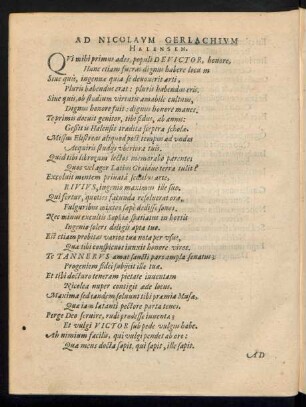 AD NICOLAVM GERLACHIVM
HALENSEM.
QVi mihi primus ades, populi DEVICTOR, honore,
Hunc etiam fueras dignus habere locum
Siue quis, ingenuæ quia se deuouerit arti,
Pluris habendus erat: pluris habendus eris.
Siue quis, ob studium virtutū amabile cultum,
Dignus honore fuit: dignus honore manes.
Te primùm docuit genitor, tibi fidus, ab annis:
Gestÿt Halensis tradita
Missum Elisteras aliquod post tempus ad vndas
Acquiris studijs vberiora tuis.
Quid tibi librorum lectus memorabo parentes
Quos vel ager Latius Graiáue terra tulit?
Excoluit mentem priuatâ sedulus arte,
RIVIVS, ingenio maximus ille suo.
Qui fertur, quoties facunda resoluerat ora,
Fulguribus mistos sæpe dedisse sonos.
Nec minus excultis Sophiæ spatiatus in hortis
Ingenio soleres deligis apta tuo.
Est etiam probitas varios tua nota per vsus,
Qua tibi conspicuus iunxit honore viros.
Te TANNERVS amat sancti pars ampla senatus:
Progeniem fidei subijcit ille tuæ.
Et tibi doctarum teneram pietate iuuentam
Nicolea nuper contigit æde locus.
Maxima sed tandem soluunt tibi præmia Musæ,
Quæ iam lætanti pectore parta tenes.
Perge Deo seruire, rudi prodesse iuuentæ;
Et vulgi VICTOR sub pede vulgus habe.
Ah nimium facilis, qui vulgi pendet ab ore:
Qua mens docta sapit, qui sapit, ille sapit.
AD